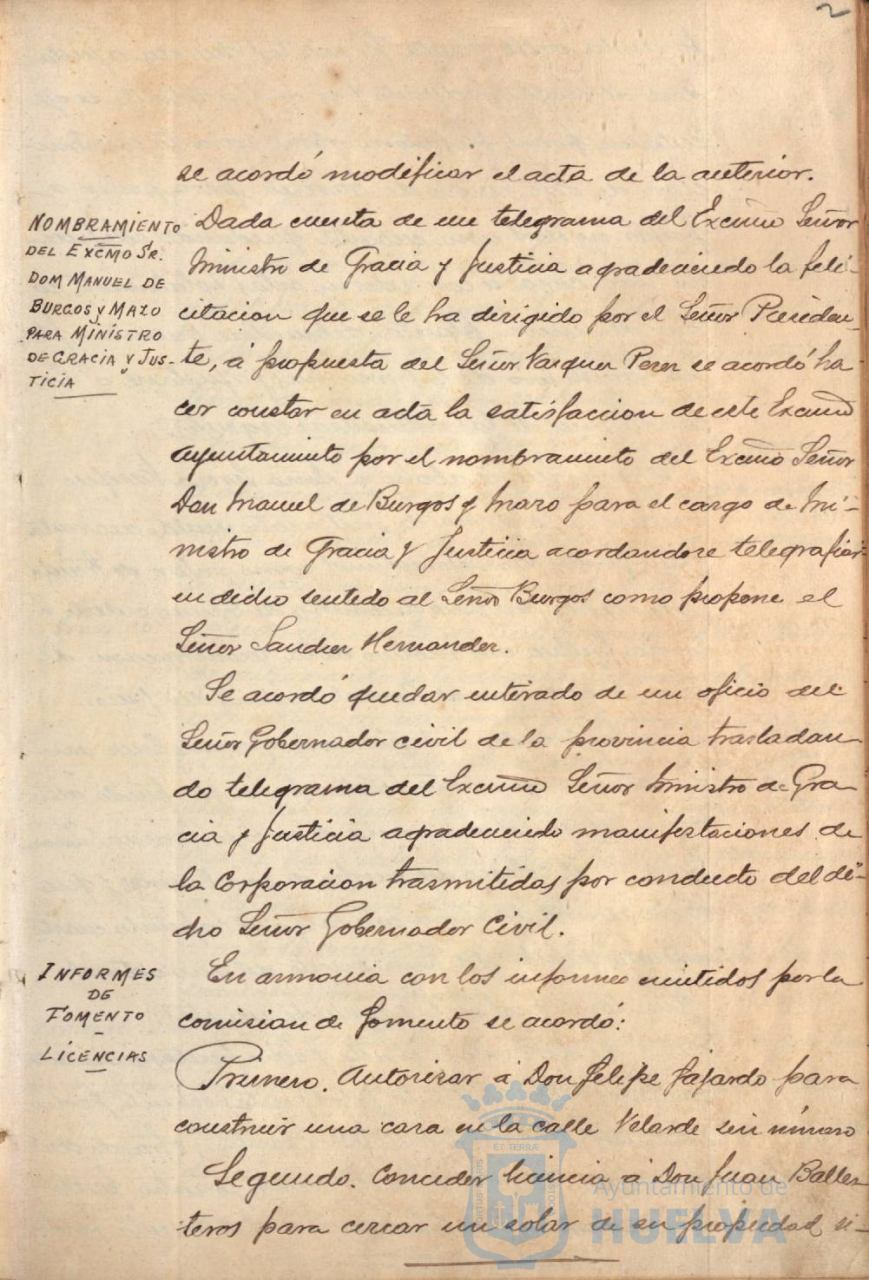 2
se acordó modificar el acta de la anterior.
NOMBRAMIENTO
DEL EXCMO SR.
DOM MANUEL DE
BURGOS Y MAZO
PARA MINISTRO
DE GRACIA Y JUS-
TICIA
Dada cuenta de un telegrama del Excmo Señor
Ministro de Gracia y Justicia agradeciendo la feli-
citacion que se le ha dirigido por el Señor Presiden-
te, á propuesta del Señor Vazquez Perez se acordó ha-
cer constar en acta la satisfaccion de este Excmo
Ayuntamiento por el nombramiento del Excmo Señor
Don Manuel de Burgos y Mazo para el cargo de Mi-
nistro de Gracia y Justicia acordandose telegrafiar
en dicho sentido al Señor Burgos como propone el
Señor Sanchez Hernandez.
Se acordó quedar enterado de un oficio del
Señor Gobernador civil de la provincia trasladan-
do telegrama del Excmo Señor Ministro de Gra-
cia y Justicia agradeciendo manifestaciones de
la Corporacion trasmitidas por conducto del di-
cho Señor Gobernador Civil.
INFORMES
DE
FOMENTO
-
LICENCIAS
En armonia con los informes emitidos por la
comision de fomento se acordó:
Primero. Autorizar á Don Felipe Fajardo para
construir una casa en la calle Velarde sin número
Segundo. Conceder licencia á Don Juan Balles-
teros para cercar un solar de su propiedad si-
Ayuntamiento de
HUELVA